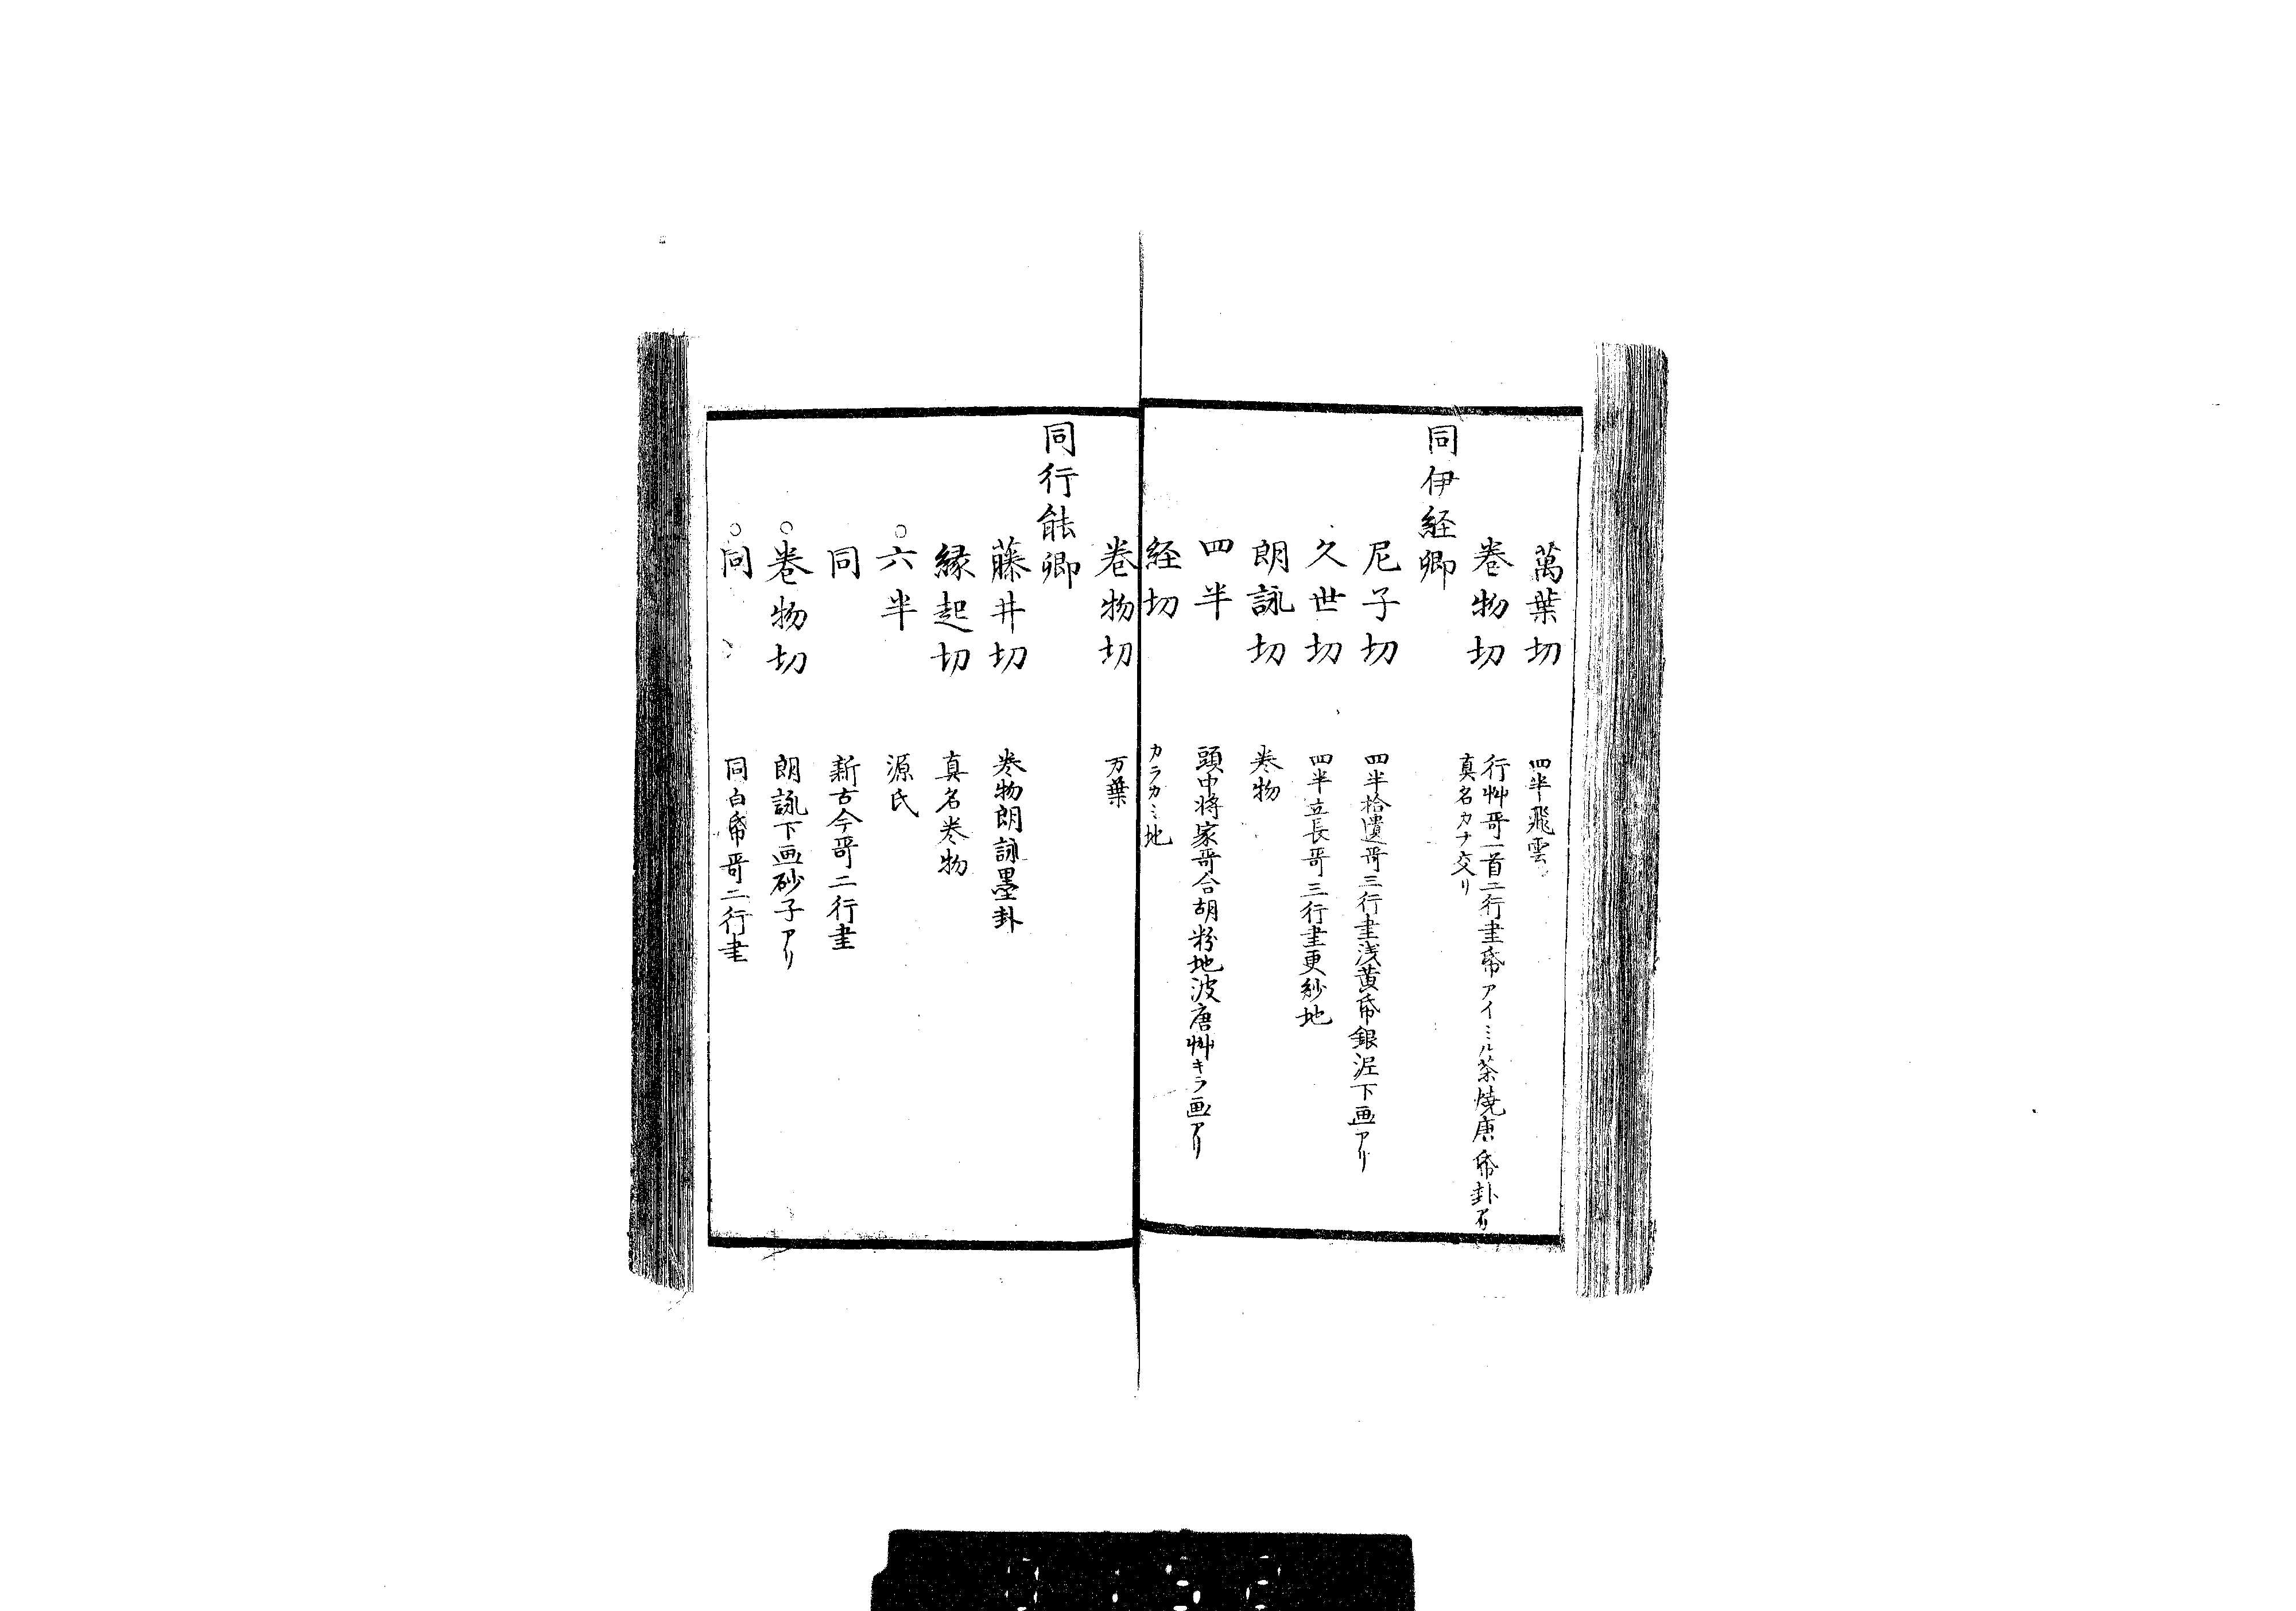 萬葉切　四半飛雲
巻物切　行艸哥一首二行書帋アイミル茶燒唐帋卦有
真名カナ交リ
同伊経卿
尼子切　四半拾遺哥三行書浅黄帋銀泥下画アリ
久世切　四半立長哥三行書更紗地
朗詠切　巻物
四半　頭中将家哥合胡粉地波唐艸キラ画アリ
経切　カラカミ地
巻物切　万葉
同行能卿
藤井切　巻物朗詠墨卦
縁起切　真名巻物
○六半　源氏
同　新古今哥二行書
○巻物切　朗詠下画砂子アリ
○同　同白帋哥二行書